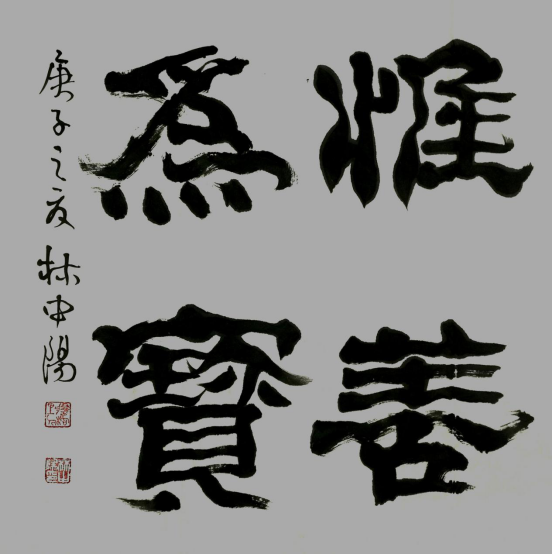 惟善
為寶
庚子之夏林中陽